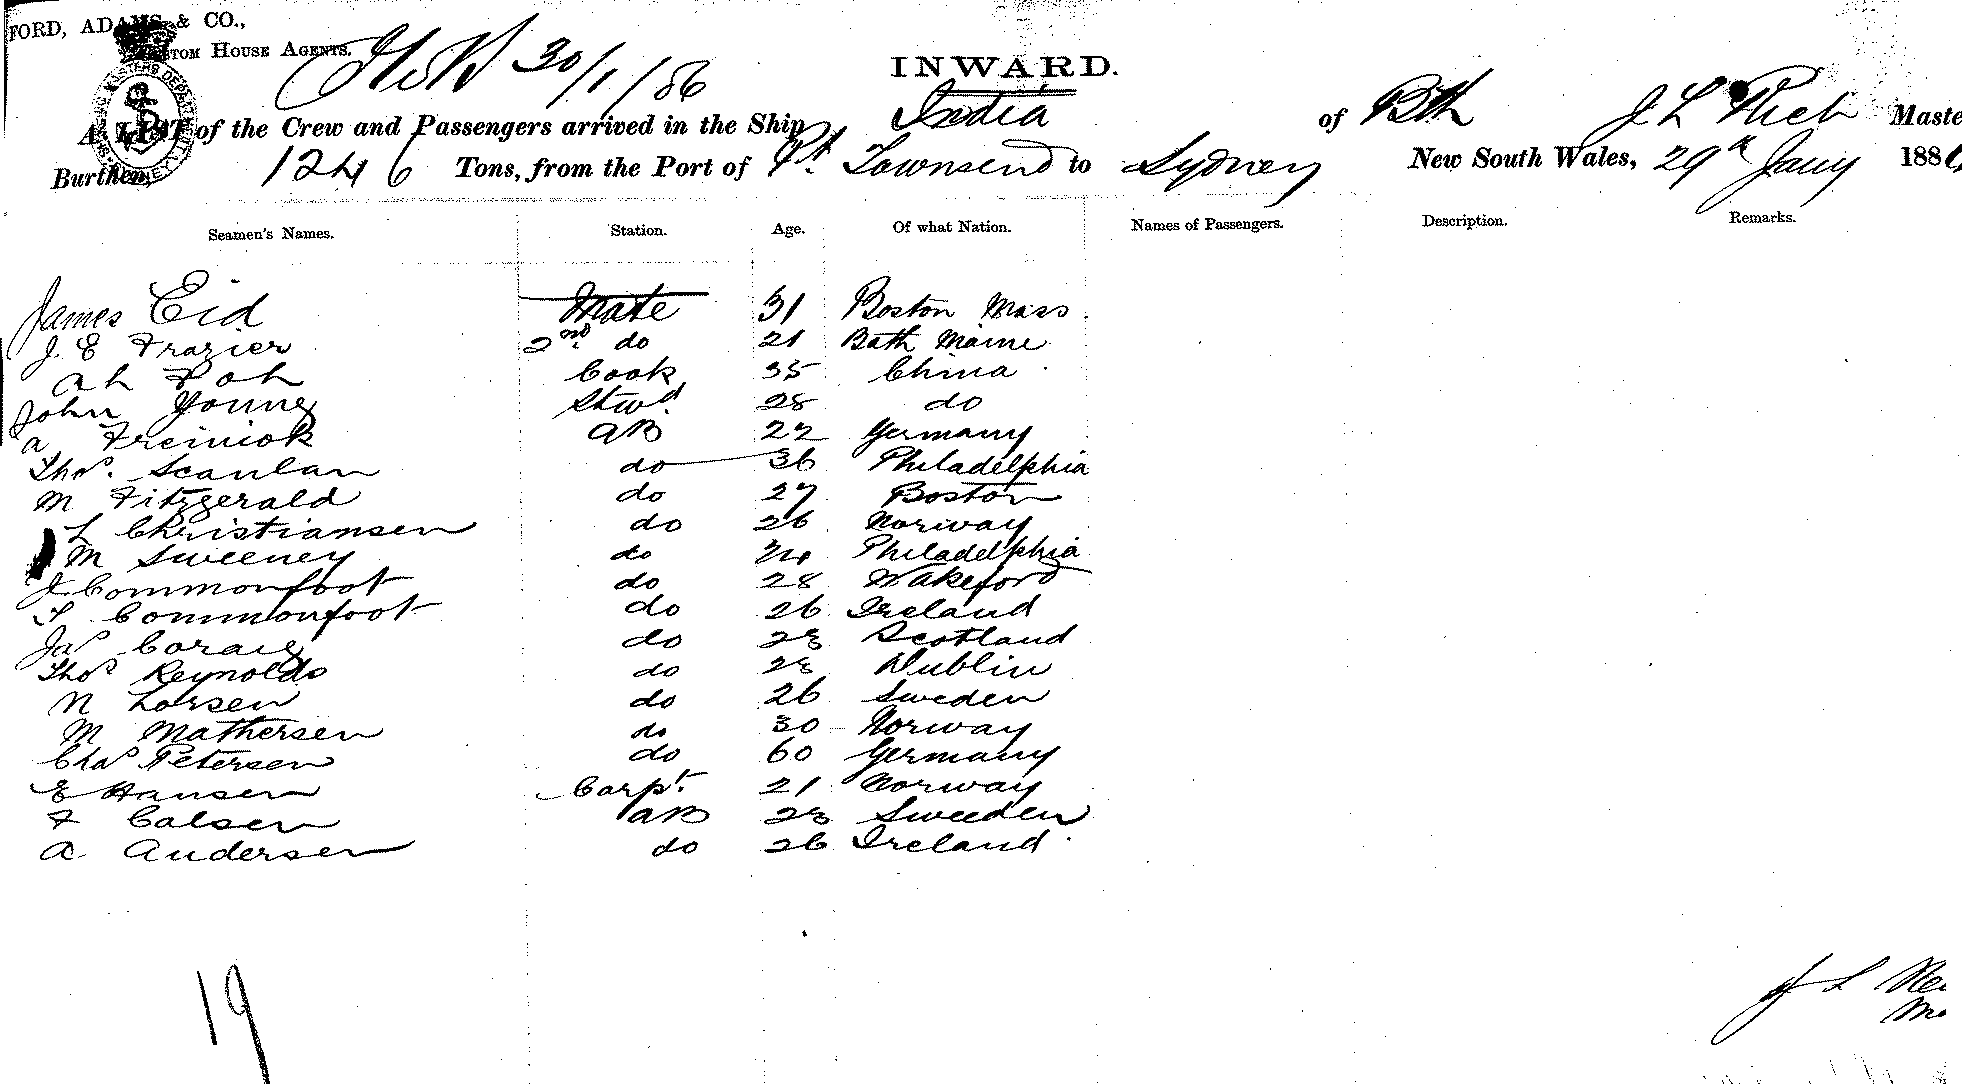 FORD, ADAMS & CO.,
CUSTOM HOUSE AGENTS.
30/1/86
INWARD.
A LIST of the Crew and Passengers arrived in the Ship India of Bth J L Rich Maste
Burthen, 1246 Tons, from the Port of Pt. Townsend to Sydney New South Wales, 29th Jany 1886
Seamen's Names. Station. Age. Of what Nation. Names of Passengers. Description. Remarks.
James Eid Mate 31 Boston Mass.
J. E Frazier 2nd. do 21 Bath Maine
Ah Foh Cook 35 China
John Young Stwd. 28 do
A Freiniok AB 22 Germany
Thos. Scanlan do 36 Philadelphia
M Fitzgerald do 27 Boston
L Christiansen do 26 Norway
M Sweeney do 24 Philadelphia
J Commonfoot do 28 Wakeford
T Commonfoot do 26 Ireland
Jas Coraig do 23 Scotland
Thos Reynolds do 23 Dublin
N Larsen do 26 Sweden
M Mathersen do 30 Norway
Chas Petersen do 60 Germany
E Hansen Carpt. 21 Norway
F Calsen AB 23 Sweeden
A. Andersen do 26 Ireland.
19
J L